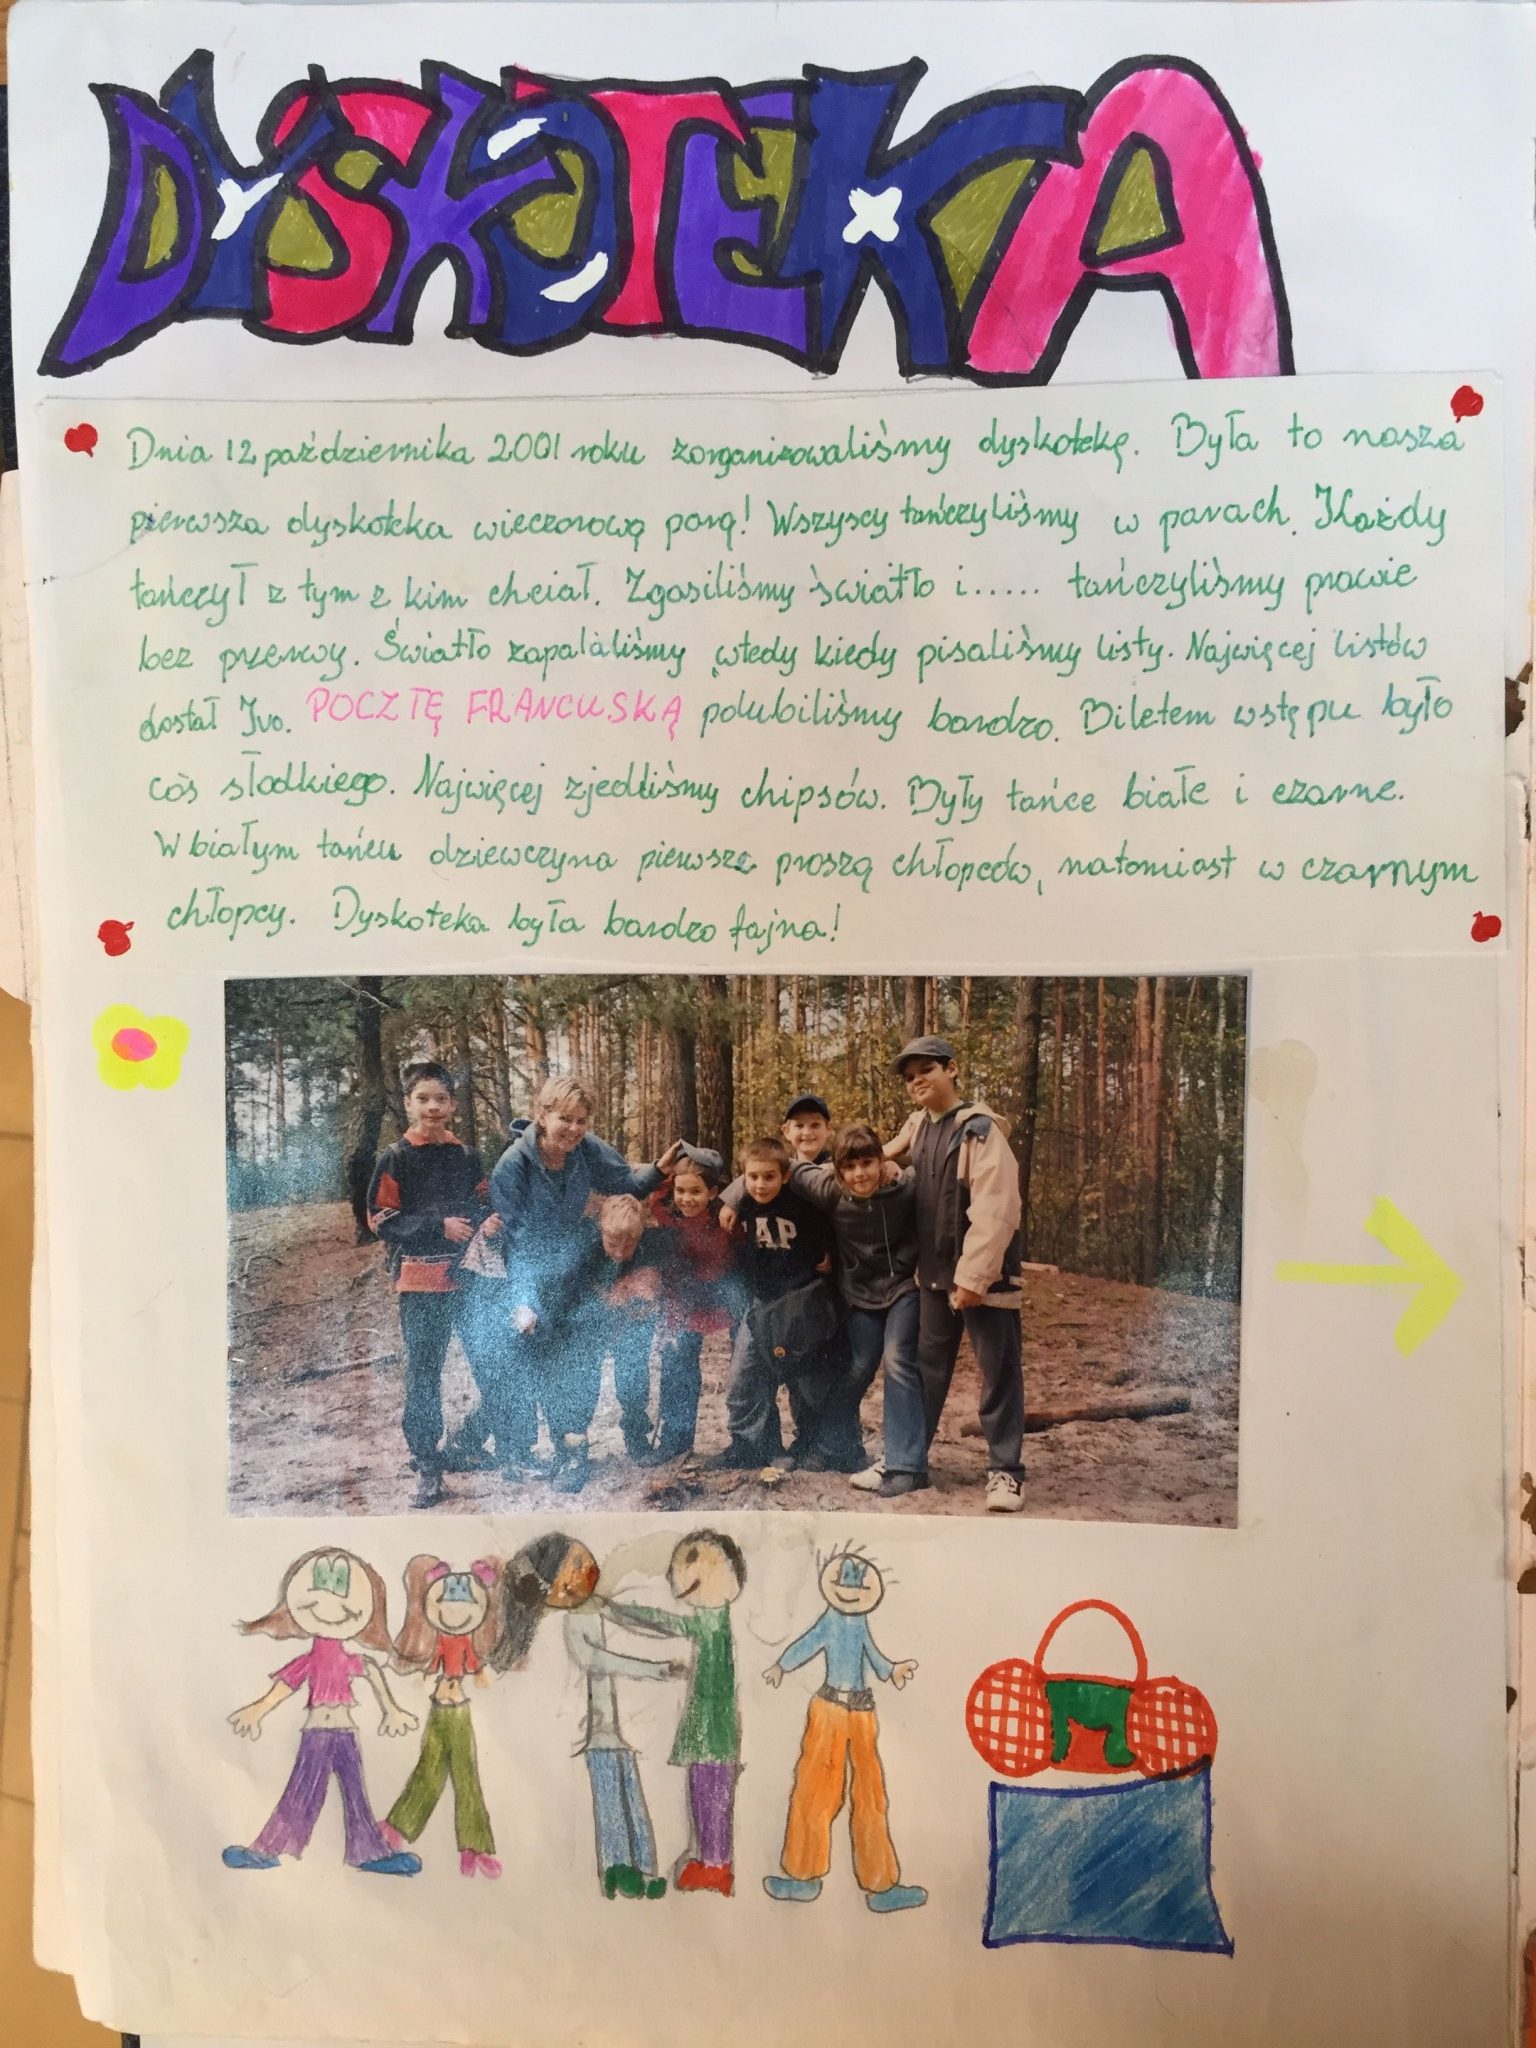 DYSKOTEKA
Dnia 12 października 2001 roku zorganizowaliśmy dyskotekę. Była to nasza
pierwsza dyskoteka wieczorową porą! Wszyscy tańczyliśmy w parach. Każdy
tańczył z tym z kim chciał. Zgasiliśmy światło i..... tańczyliśmy prawie
bez przerwy. Światło zapalaliśmy wtedy kiedy pisaliśmy listy. Najwięcej listów
dostał Ivo. POCZTĘ FRANCUSKĄ polubiliśmy bardzo. Biletem wstępu było
coś słodkiego. Najwięcej zjedliśmy chipsów. Były tańce białe i czarne.
W białym tańcu dziewczyna pierwsza proszą chłopców, natomiast w czarnym
chłopcy. Dyskoteka była bardzo fajna!
GAP